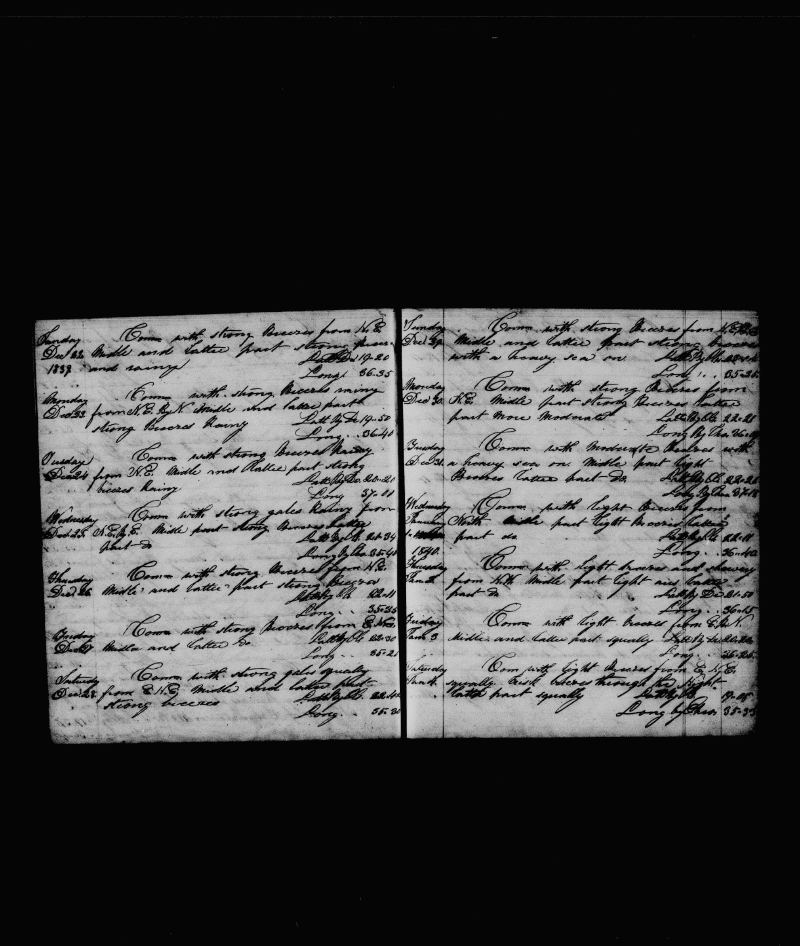 Sunday Comm with strong Breezes from N. E
Dec 22 Midle and latter part strong
1839 and rainy Latt By Do 19-20
Long 36-35
Monday Comm with strong Breezes rainy
Dec 23 from N. E. By N Midle and latter part
strong Breezes Rainy Latt By Do 19-50
Long 36-40
Tuesday Comm with strong Breezes Rainy
Dec 24 from N. E. Midle and latter part strong
breezes Rainy Latt By Do 20-21
Long 37-01
Wednesday Comm with strong gales Rainy from
Dec 25 N. E. By E. Midle part strong Breezes latter
part do Latt By Ob 21-34
Long By Chro 35-40
Thursday Comm with strong Breezes from N. E.
Dec 26 Midle and latter part strong breezes
Latt By Ob 22-11
Long 35-25
Friday Comm with strong Breezes from
Dec 27 Midle and latter do Latt By Ob 22-30
Long 35-21
Saturday Comm with strong gales squally
Dec 28 from E. N. E. Midle and latter part
strong breezes Latt By Ob
Long 35-31
Sunday Comm with strong Breezes from
Dec 29 Midle and latter part strong breezes
with a heavy sea on Latt By Ob
Long 35-35
Monday Comm with strong Breezes from
Dec 30 N. E. Midle part strong Breezes latter
part More Moderate Latt By Ob 22-21
Long By Chro
Tuesday Comm with Moderate Breezes with
Dec 31 a heavy sea on Midle part light
Breezes latter part do Latt By Ob 22-21
Long By Chro 37-18
Wednesday Comm with light Breezes from
January North Midle part light Breezes latter
1 part do Latt By Ob 22-11
1840 Long 36-40
Thursday Comm with light breezes and showery
Jan 2 from Nth Midle part light and latter
part do Latt By Do 21-50
Long 36-15
Friday Comm with light breezes from E. By N
Jan 3 Midle and latter part squally Latt By Do
Long 36-25
Saturday Com with light Breezes from E. N. E.
Jan 4 squally brisk breezes through the Night
latter part squally Latt By Ob
Long by Chro 35-33